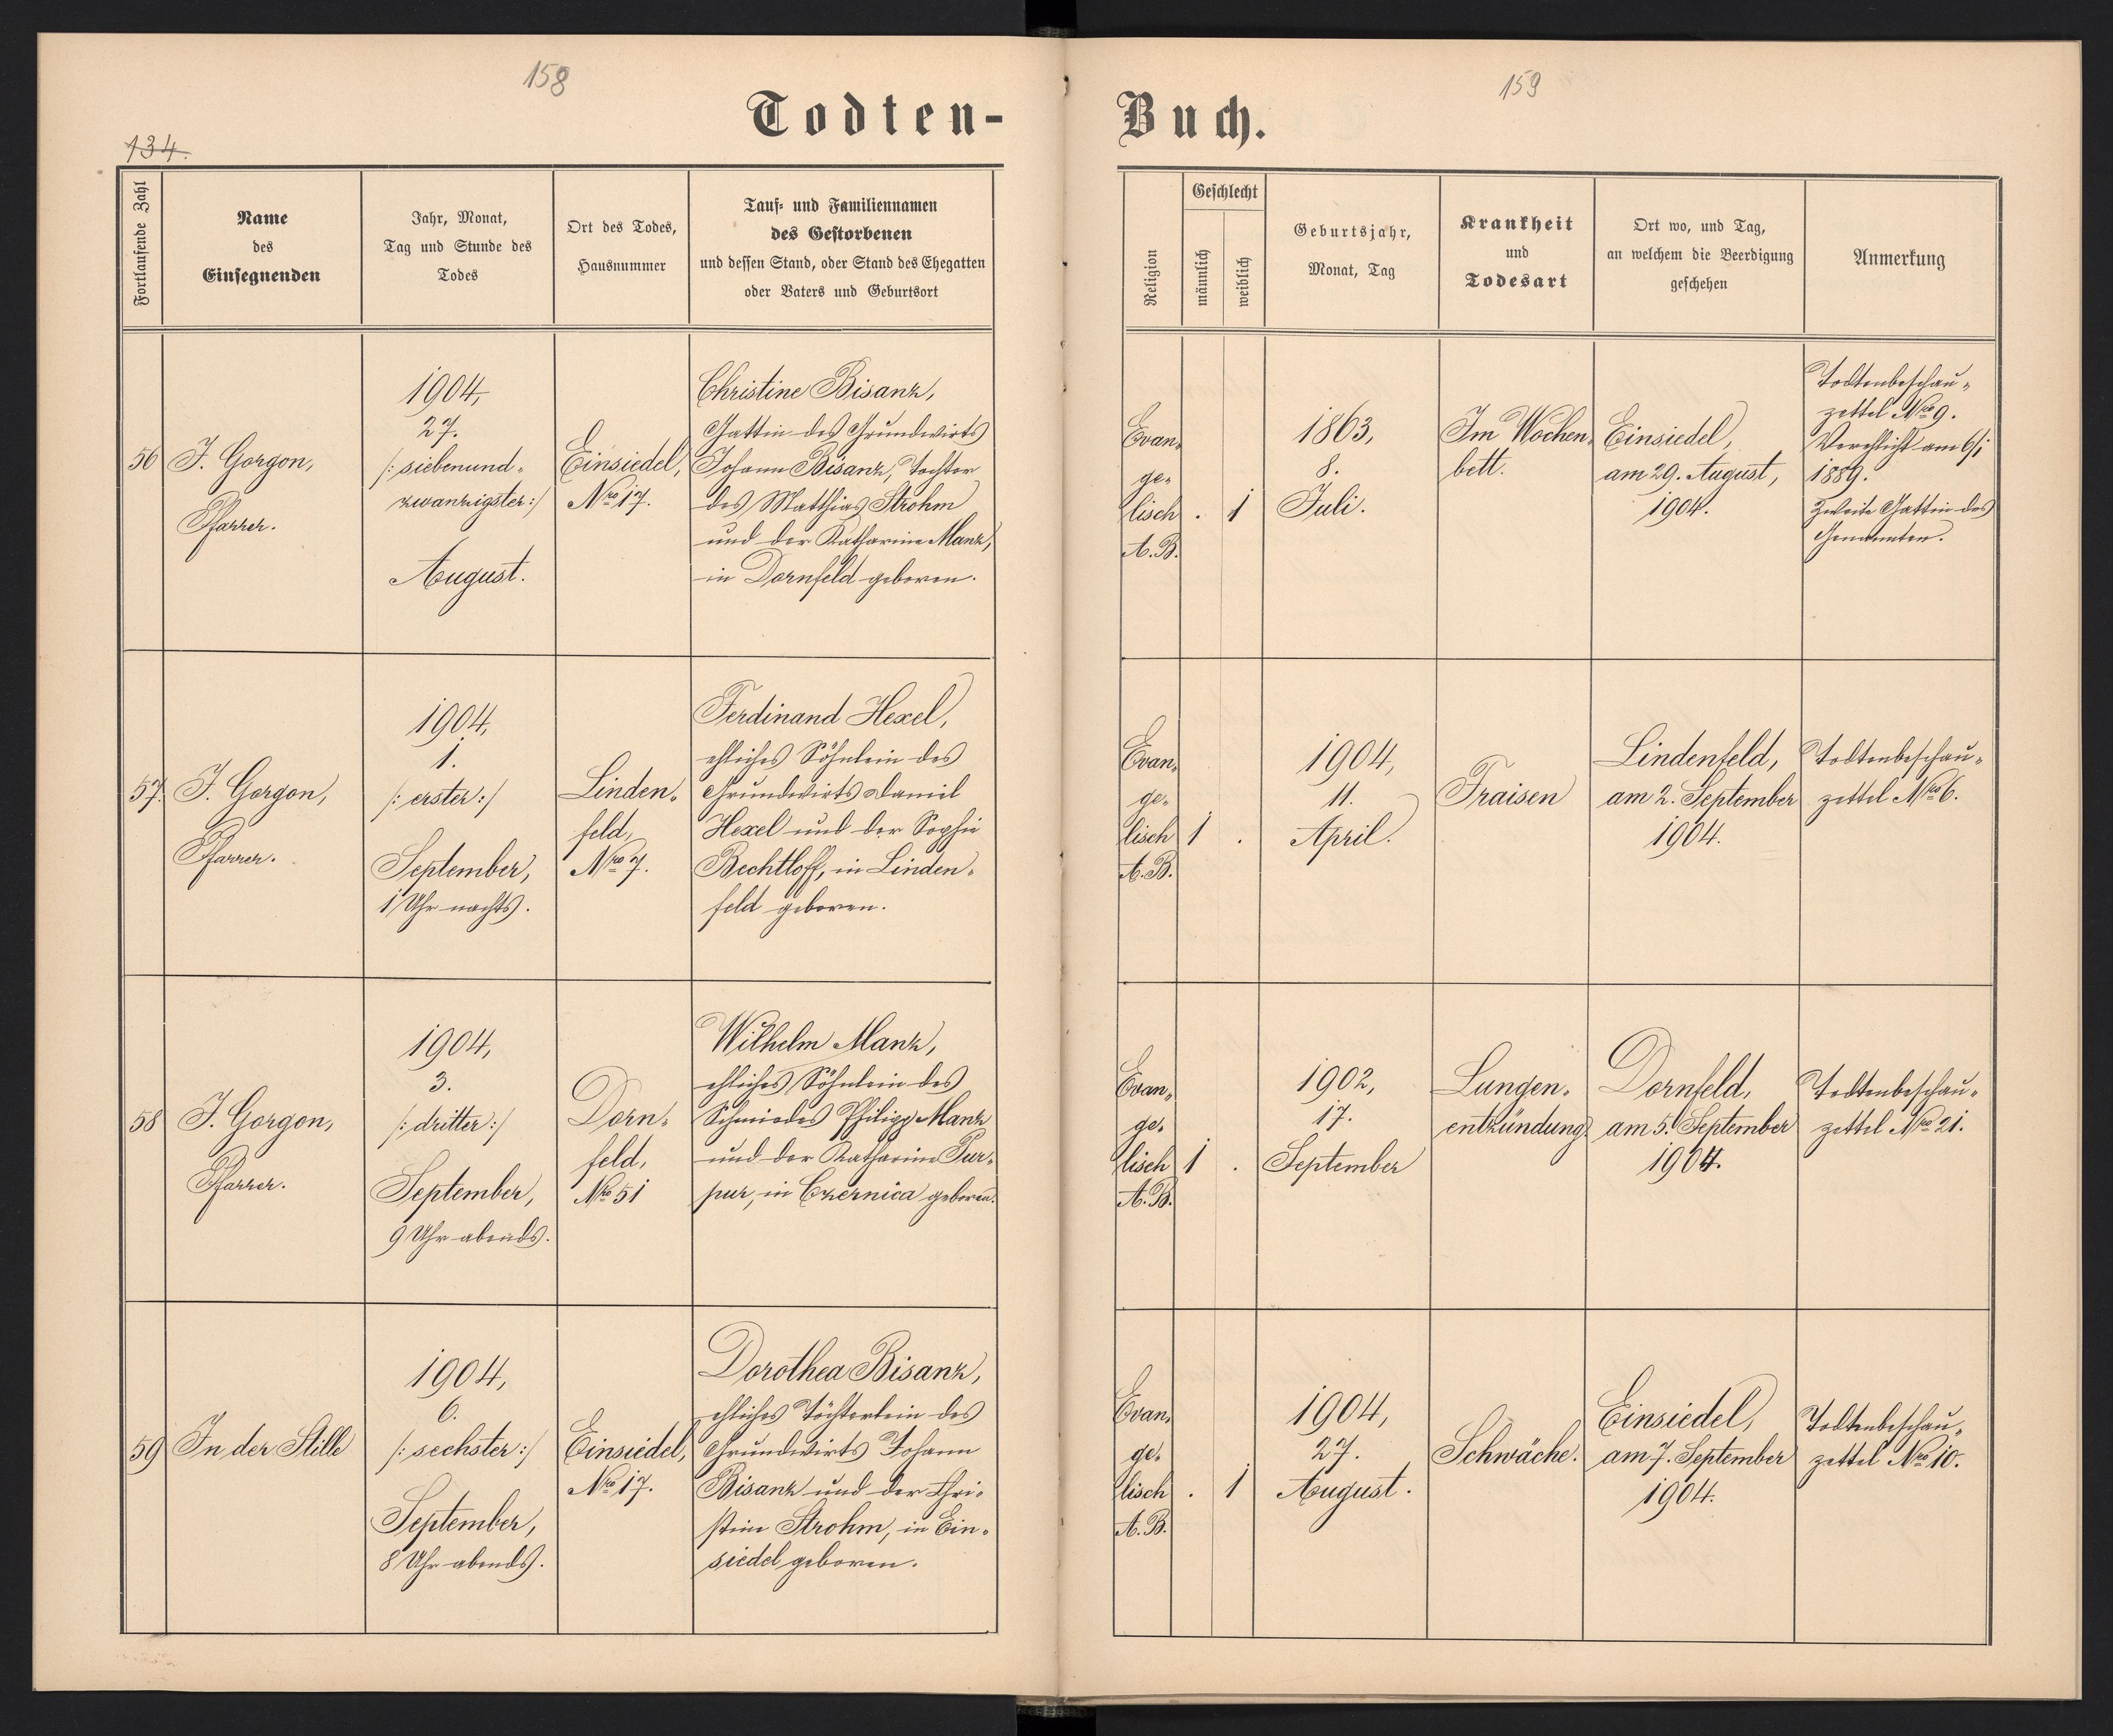 158
134.
Todten-
Fortlaufende Zahl
Name
des
Einsegnenden
Jahr, Monat,
Tag und Stunde des
Todes
Ort des Todes,
Hausnummer
Tauf- und Familiennamen
des Gestorbenen
und dessen Stand, oder Stand des Ehegatten
oder Vaters und Geburtsort
56
J. Gorgon,
Pfarrer.
1904,
27.
/: siebenund-
zwanzigster :/
August.
Einsiedel,
Nro 17.
Christine Bisanz,
Gattin des Grundwirts
Johann Bisanz, Tochter
des Matthias Strohm
und der Katharine Manz,
in Dornfeld geboren.
57.
J. Gorgon,
Pfarrer.
1904,
1.
/: erster :/
September,
1 Uhr nachts.
Linden-
feld,
Nro 7.
Ferdinand Hexel,
ehliches Söhnlein des
Grundwirts Daniel
Hexel und der Sophie
Bechtloff, in Linden-
feld geboren.
58
J. Gorgon,
Pfarrer.
1904,
3.
/: dritter :/
September,
9 Uhr abends.
Dorn-
feld,
Nro 51
Wilhelm Manz,
ehliches Söhnlein des
Schmiedes Philipp Manz
und der Katharine Pur-
pur, in Czernica geboren.
59
In der Stille
1904,
6.
/: sechster :/
September,
8 Uhr abends.
Einsiedel,
Nro 17.
Dorothea Bisanz,
ehliches Töchterlein des
Grundwirts Johann
Bisanz und der Chri-
stine Strohm, in Ein-
siedel geboren.
159
Buch.
Religion
Geschlecht
männlich
weiblich
Geburtsjahr,
Monat, Tag
Krankheit
und
Todesart
Ort wo, und Tag,
an welchem die Beerdigung
geschehen
Anmerkung
Evan-
ge-
lisch
A. B.
. 1
1863,
8.
Juli.
Im Wochen-
bett.
Einsiedel,
am 29. August,
1904.
Todtenbeschau-
zettel Nro 9.
Verehlicht am 6/1
1889.
Zweite Gattin des
Genannten.
Evan-
ge-
lisch
A. B.
1 .
1904,
11.
April.
Fraisen
Lindenfeld,
am 2. September
1904.
Todtenbeschau-
zettel Nro 6.
Evan-
ge-
lisch
A. B.
1 .
1902,
17.
September
Lungen-
entzündung
Dornfeld,
am 5. September
1904.
Todtenbeschau-
zettel Nro 21.
Evan-
ge-
lisch
A. B.
. 1
1904,
27.
August.
Schwäche.
Einsiedel,
am 7. September
1904.
Todtenbeschau-
zettel Nro 10.